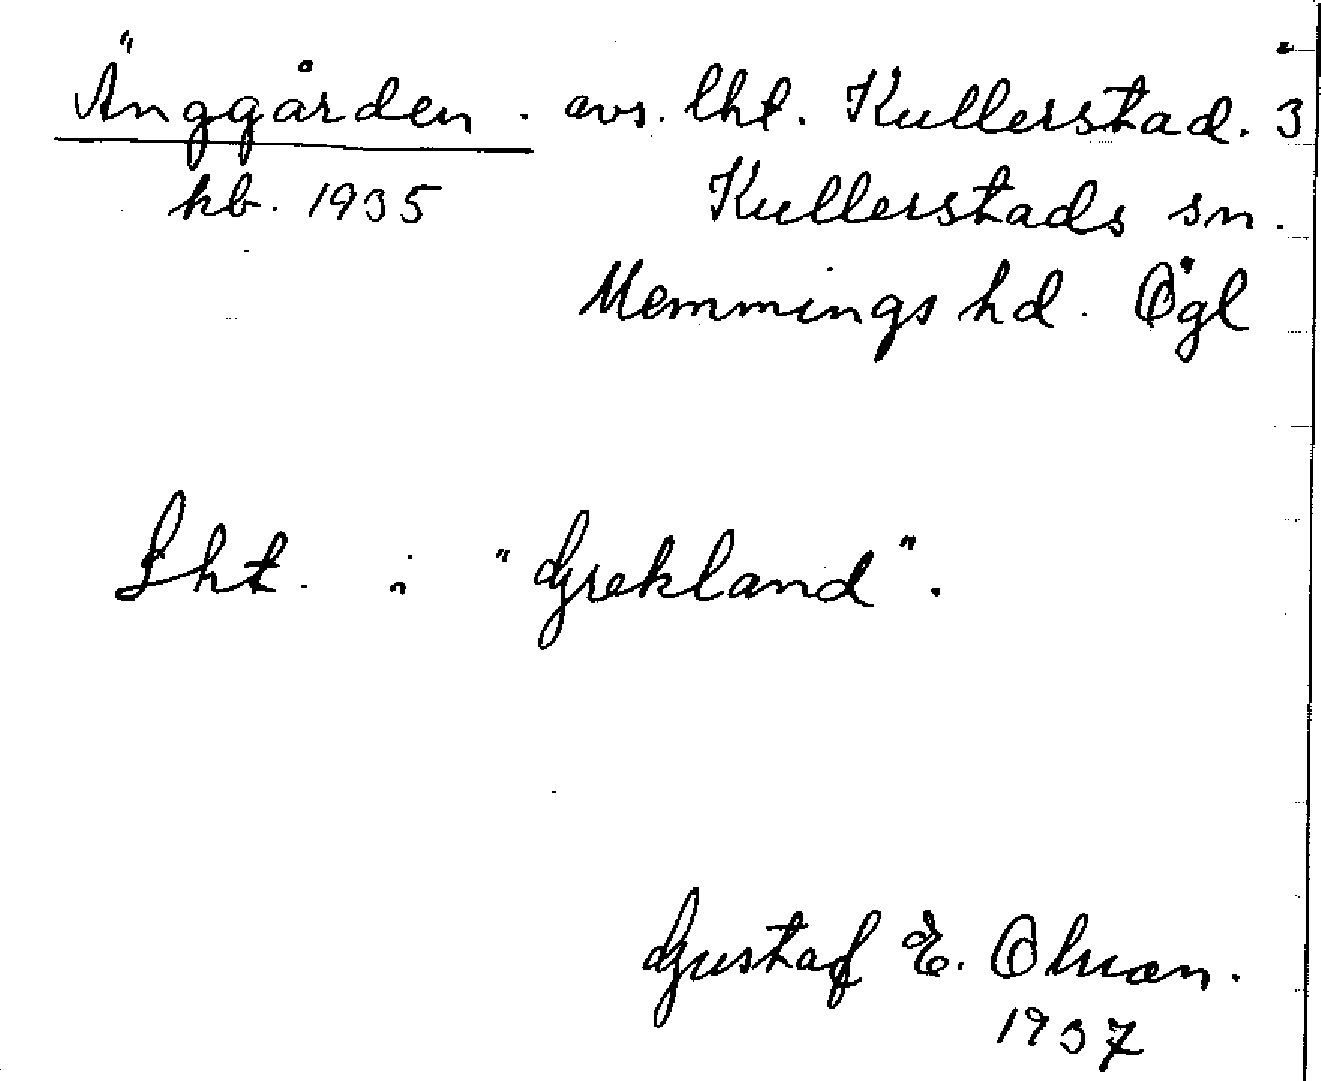 Änggården. avs. lht. Kullerstad. 3
kb. 1935 Kullerstads sn.
Memmings hd. Ögl
Lht. i "Grekland".
Gustaf E. Olson.
1937